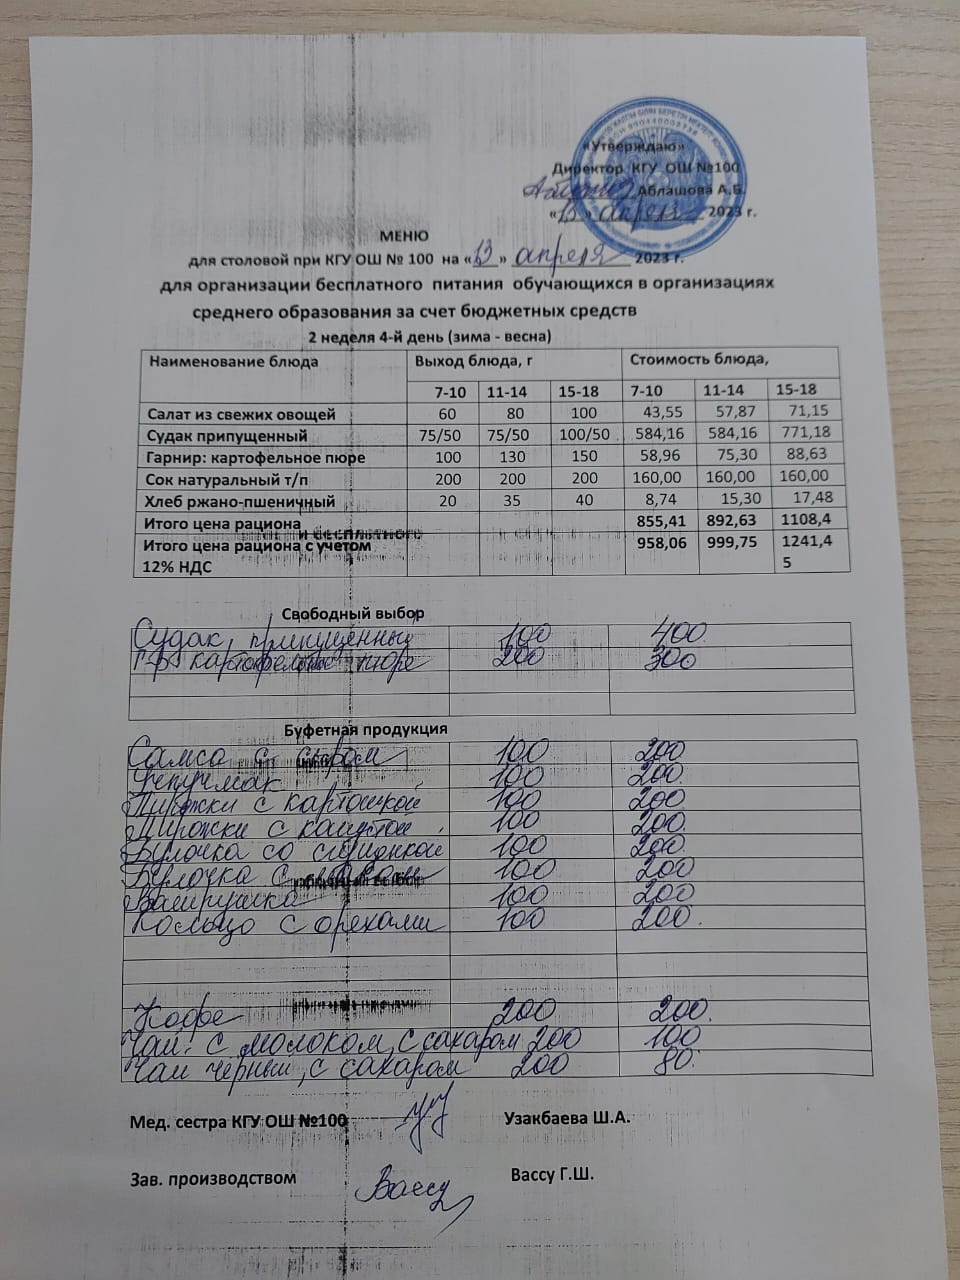 «Утверждаю»
Директор КГУ ОШ №100
Аблашова А.Б.
«13» апреля 2023 г.
МЕНЮ
для столовой при КГУ ОШ № 100 на «13» апреля 2023 г.
для организации бесплатного питания обучающихся в организациях
среднего образования за счет бюджетных средств
2 неделя 4-й день (зима - весна)
Наименование блюда Выход блюда, г Стоимость блюда,
7-10 11-14 15-18 7-10 11-14 15-18
Салат из свежих овощей 60 80 100 43,55 57,87 71,15
Судак припущенный 75/50 75/50 100/50 584,16 584,16 771,18
Гарнир: картофельное пюре 100 130 150 58,96 75,30 88,63
Сок натуральный т/п 200 200 200 160,00 160,00 160,00
Хлеб ржано-пшеничный 20 35 40 8,74 15,30 17,48
Итого цена рациона 855,41 892,63 1108,4
Итого цена рациона с учетом 958,06 999,75 1241,4
12% НДС 5
Свободный выбор
Судак припущенный 100 400
Гр картофельное пюре 200 300
Буфетная продукция
Самса с сыром 100 200
Учпучмак 100 200
Пирожки с картошкой 100 200
Пирожки с капустой 100 200
Булочка со сгущенкой 100 200
Булочка с маком 100 200
Ватрушка 100 200
Кольцо с орехами 100 200.
Кофе 200 200.
Чай с молоком, с сахаром 200 100
Чай черный, с сахаром 200 80.
Мед. сестра КГУ ОШ №100 Узакбаева Ш.А.
Зав. производством Вассу Вассу Г.Ш.